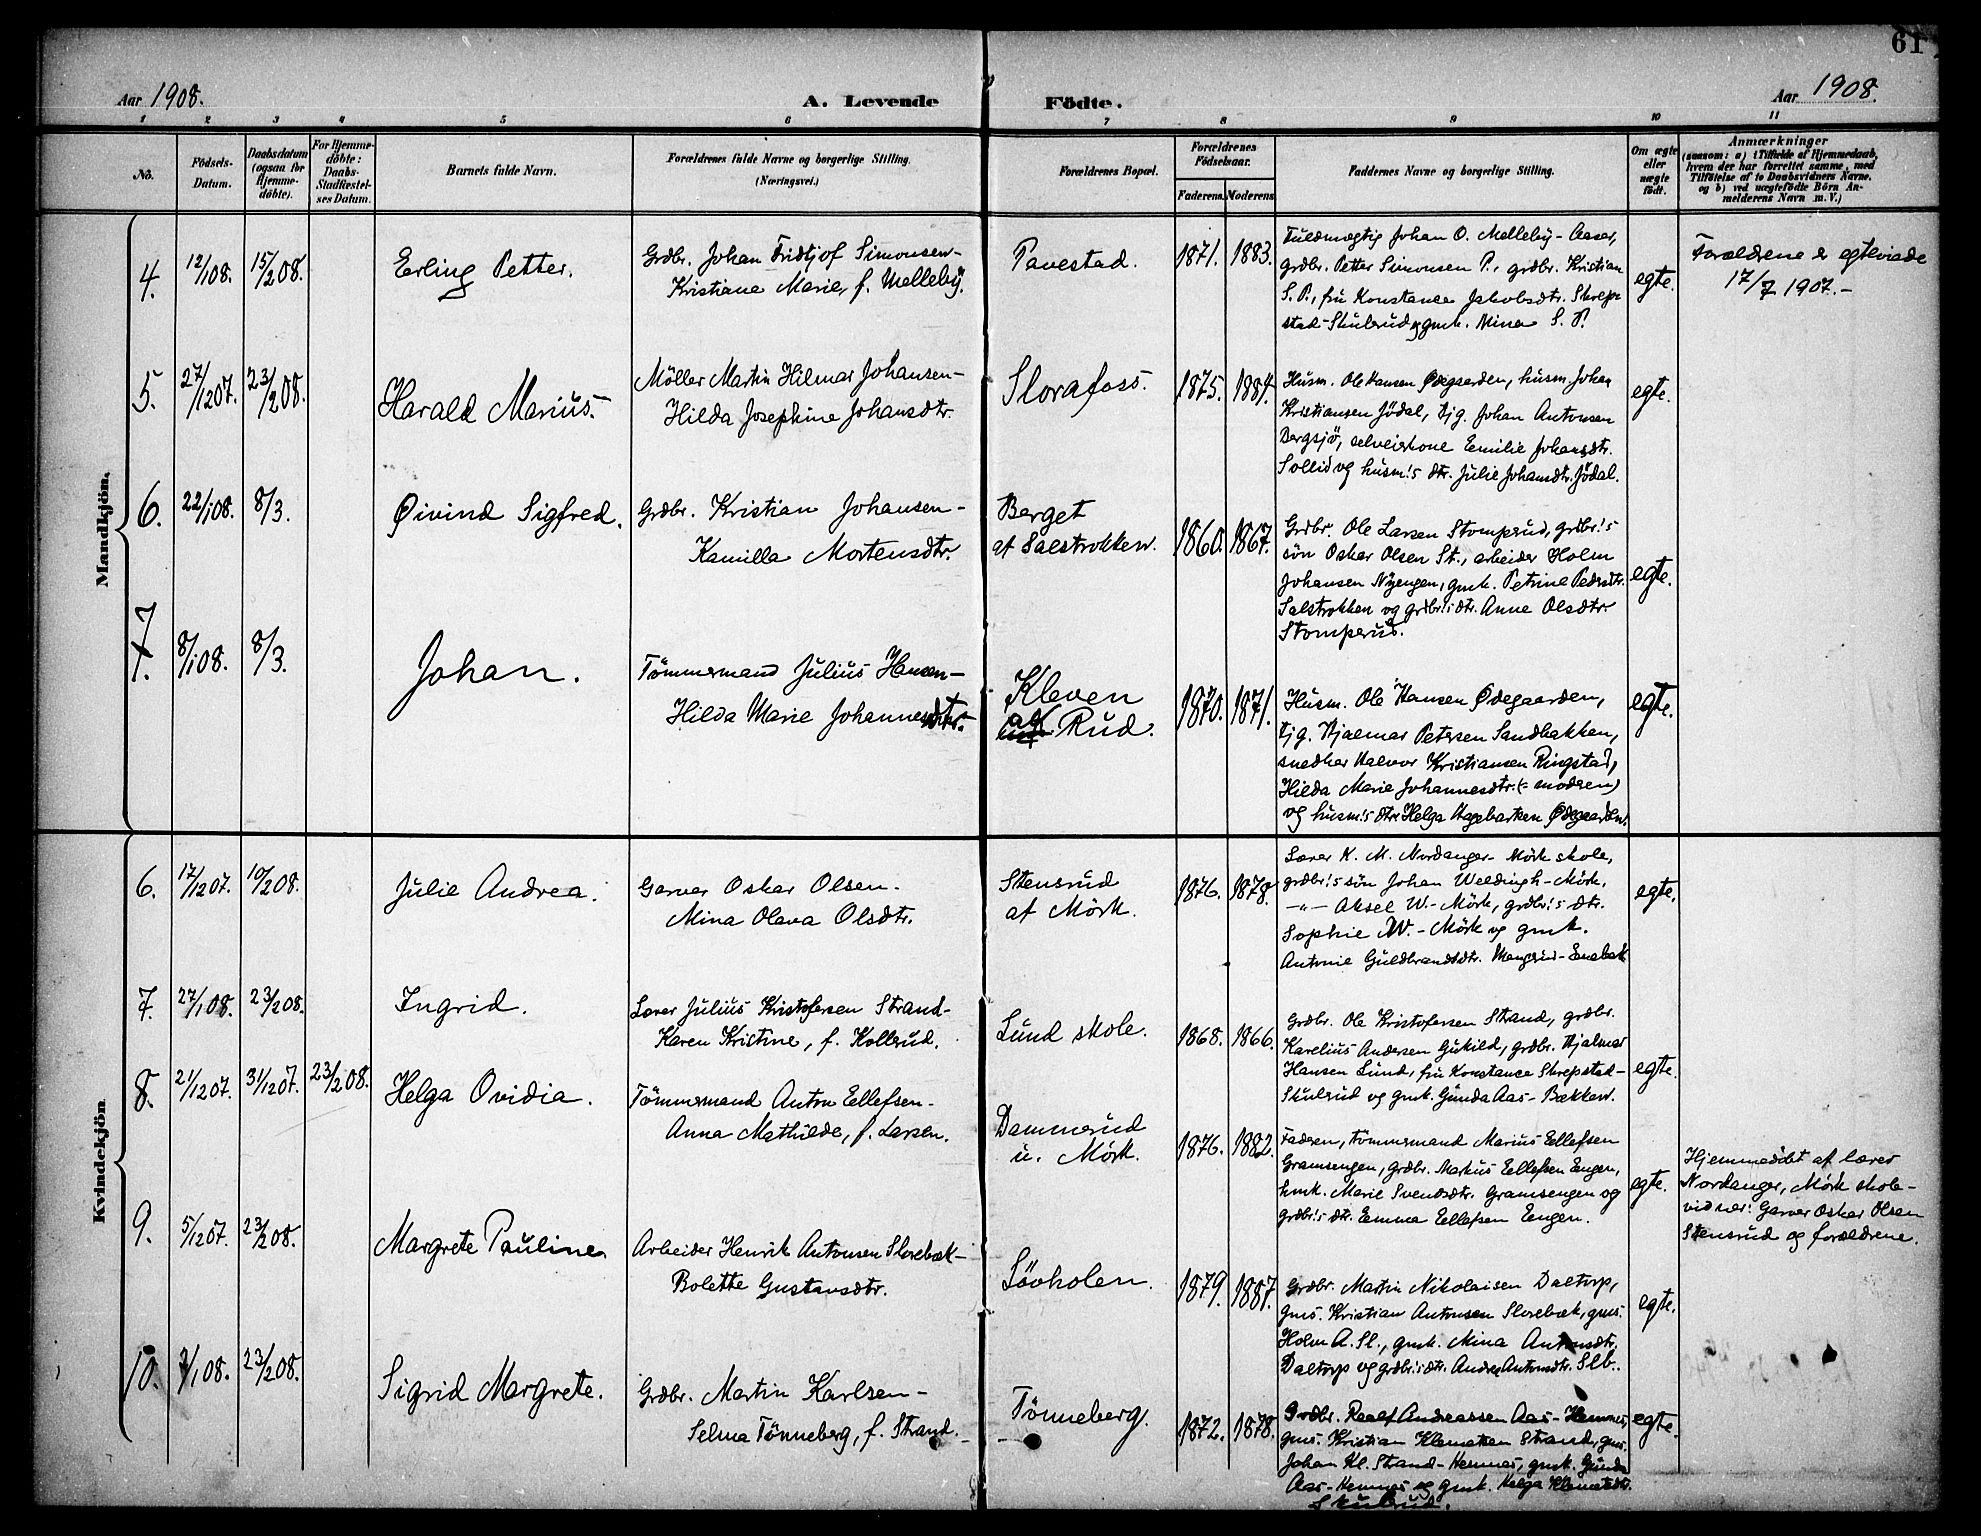 61
Aar 1908.
A. Levende Födte.
Aar 1908.
1 2 3 4 5 6 7 8 9 10 11
No.
Födsels-Datum.
Daabsdatum (ogsaa for Hjemme-döbte).
For Hjemme-döbte: Daabs-Stadfæstel-ses Datum.
Barnets fulde Navn.
Forældrenes fulde Navne og borgerlige Stilling. (Næringsvei.)
Forældrenes Bopæl.
Forældrenes Födselsaar.
Faderens. Moderens
Faddernes Navne og borgerlige Stilling.
Om ægte eller uægte födt.
Anmærkninger
(saasom: a) i Tilfælde af Hjemmedaab,
hvem der har forrettet samme, med
Tilföielse af to Daabsvidners Navne.
og b) ved uægtefödte Börn An-
melderens Navn m. V.)
Mandkjön.
4. 12/1 08. 15/2 08. Erling Petter.
Grdbr. Johan Fridtjof Simonsen-
Kristiane Marie, f. Melleby.
Tavestad. 1871. 1883.
Fuldmægtig Johan O. Melleby-Aaser,
grdbr. Petter Simonsen P., grdbr. Kristian
S. P., fru Konstance Jakobsdtr. Skrep-
stad-Skulerud og gmk. Mina S. P.
egte.
Forældrene er egteviede
17/7 1907.-
5. 27/12 07. 23/2 08. Harald Marius.
Möller Martin Hilmar Johansen-
Hilda Josephine Johansdtr.
Slorafoss. 1875. 1884.
Husm. Ole Hansen Ødegaarden, husm. Johan
Kristiansen Jödal, tjg. Johan Antonsen
Bergsjø, selveierkone Emilie Johansdtr.
Sollid og husm!s dtr. Julie Johansdtr. Jödal.
egte.
6. 22/1 08. 8/3. Øivind Sigfred.
Grdbr. Kristian Johansen-
Kamilla Mortensdtr.
Berget
af Salstrokken. 1860. 1867.
Grdbr. Ole Larsen Stomperud, grdbr!s
sön Oskar Olsen St., arbeider Holm
Johansen Nyengen, gmk. Petrine Pedersdtr.
Salstrokken og grdbr!s dtr. Anne Olsdtr.
Stomperud.
egte.
7. 8/1 08. 8/3. Johan.
Tömmermand Julius Hansen-
Hilda Marie Johannesdtr.
Kleven
af Rud. 1870. 1871.
Husm. Ole Hansen Ødegaarden,
tjg. Hjalmar Petersen Sandbakken,
snedker Halvor Kristiansen Ringstad,
Hilda Marie Johannesdtr. (= moderen)
og husm!s dtr. Helga Hagebarken Ødegaarden.
egte.
Kvindekjön
6. 17/12 07. 10/2 08. Julie Andrea.
Garver Oskar Olsen.
Mina Olava Olsdtr.
Stensrud
af Mörk. 1876. 1878.
Lærer K. M. Nordanger-Mörk skole,
grdbr!s sön Johan Weldingh-Mörk,
-"- Aksel W.-Mörk, grdbr!s dtr.
Sophie W.-Mörk og gmk.
Antonie Guldbrandsdtr. Mangrud-Enebak
egte.
7. 27/1 08. 23/2 08. Ingrid.
Lærer Julius Kristofersen Strand-
Karen Kristine, f. Kollerud.
Lund skole. 1868. 1866.
Grdbr. Ole Kristofersen Strand, grdbr.
Karelius Andersen Gukild, grdbr. Hjalmar
Hansen Lund, fru Konstance Skrepstad-
Skulerud og gmk. Gunda Aas-Bakken.
egte.
8. 21/12 07. 31/12 07. 23/2 08. Helga Ovidia.
Tömmermand Anton Ellefsen-
Anna Mathilde, f. Larsen.
Dammerud
u. Mörk. 1876. 1882.
Faderen, tömmermand Marius Ellefsen
Gramsengen, grdbr. Markus Ellefsen Engen,
tmk. Marie Svendsdtr. Gramsengen og
grdbr!s dtr. Emma Ellefsen Engen.
egte.
Hjemmedöbt af lærer
Nordanger, Mörk skole-
vidner: Garver Oskar Olsen
Stensrud og forældrene.
9. 5/12 07. 23/2 08. Margrete Pauline
Arbeider Henrik Antonsen Slorebæk-
Bolette Gustavsdtr.
Lövholen. 1879. 1887.
Grdbr. Martin Nikolaisen Daltorp,
gms. Kristian Antonsen Slorebæk, gms.
Holm A. Sl., gmk. Mina Antonsdtr.
Daltorp og grdbr!s dtr. Andrea Antonsdtr. Slb.
egte.
10. 7/1 08. 23/2 08. Sigrid Margrete.
Grdbr. Martin Karlsen-
Selma Tönneberg, f. Strand.
Tönneberg. 1872. 1878.
Grdbr. Realf Andreassen Aas-Hemnes,
gms. Kristian Klemetsen Strand, gms.
Johan Kl. Strand-Hemnes, gmk. Gunda
Aas-Hemnes og gmk. Helga Klemetsdtr.
Skulerud.
egte.